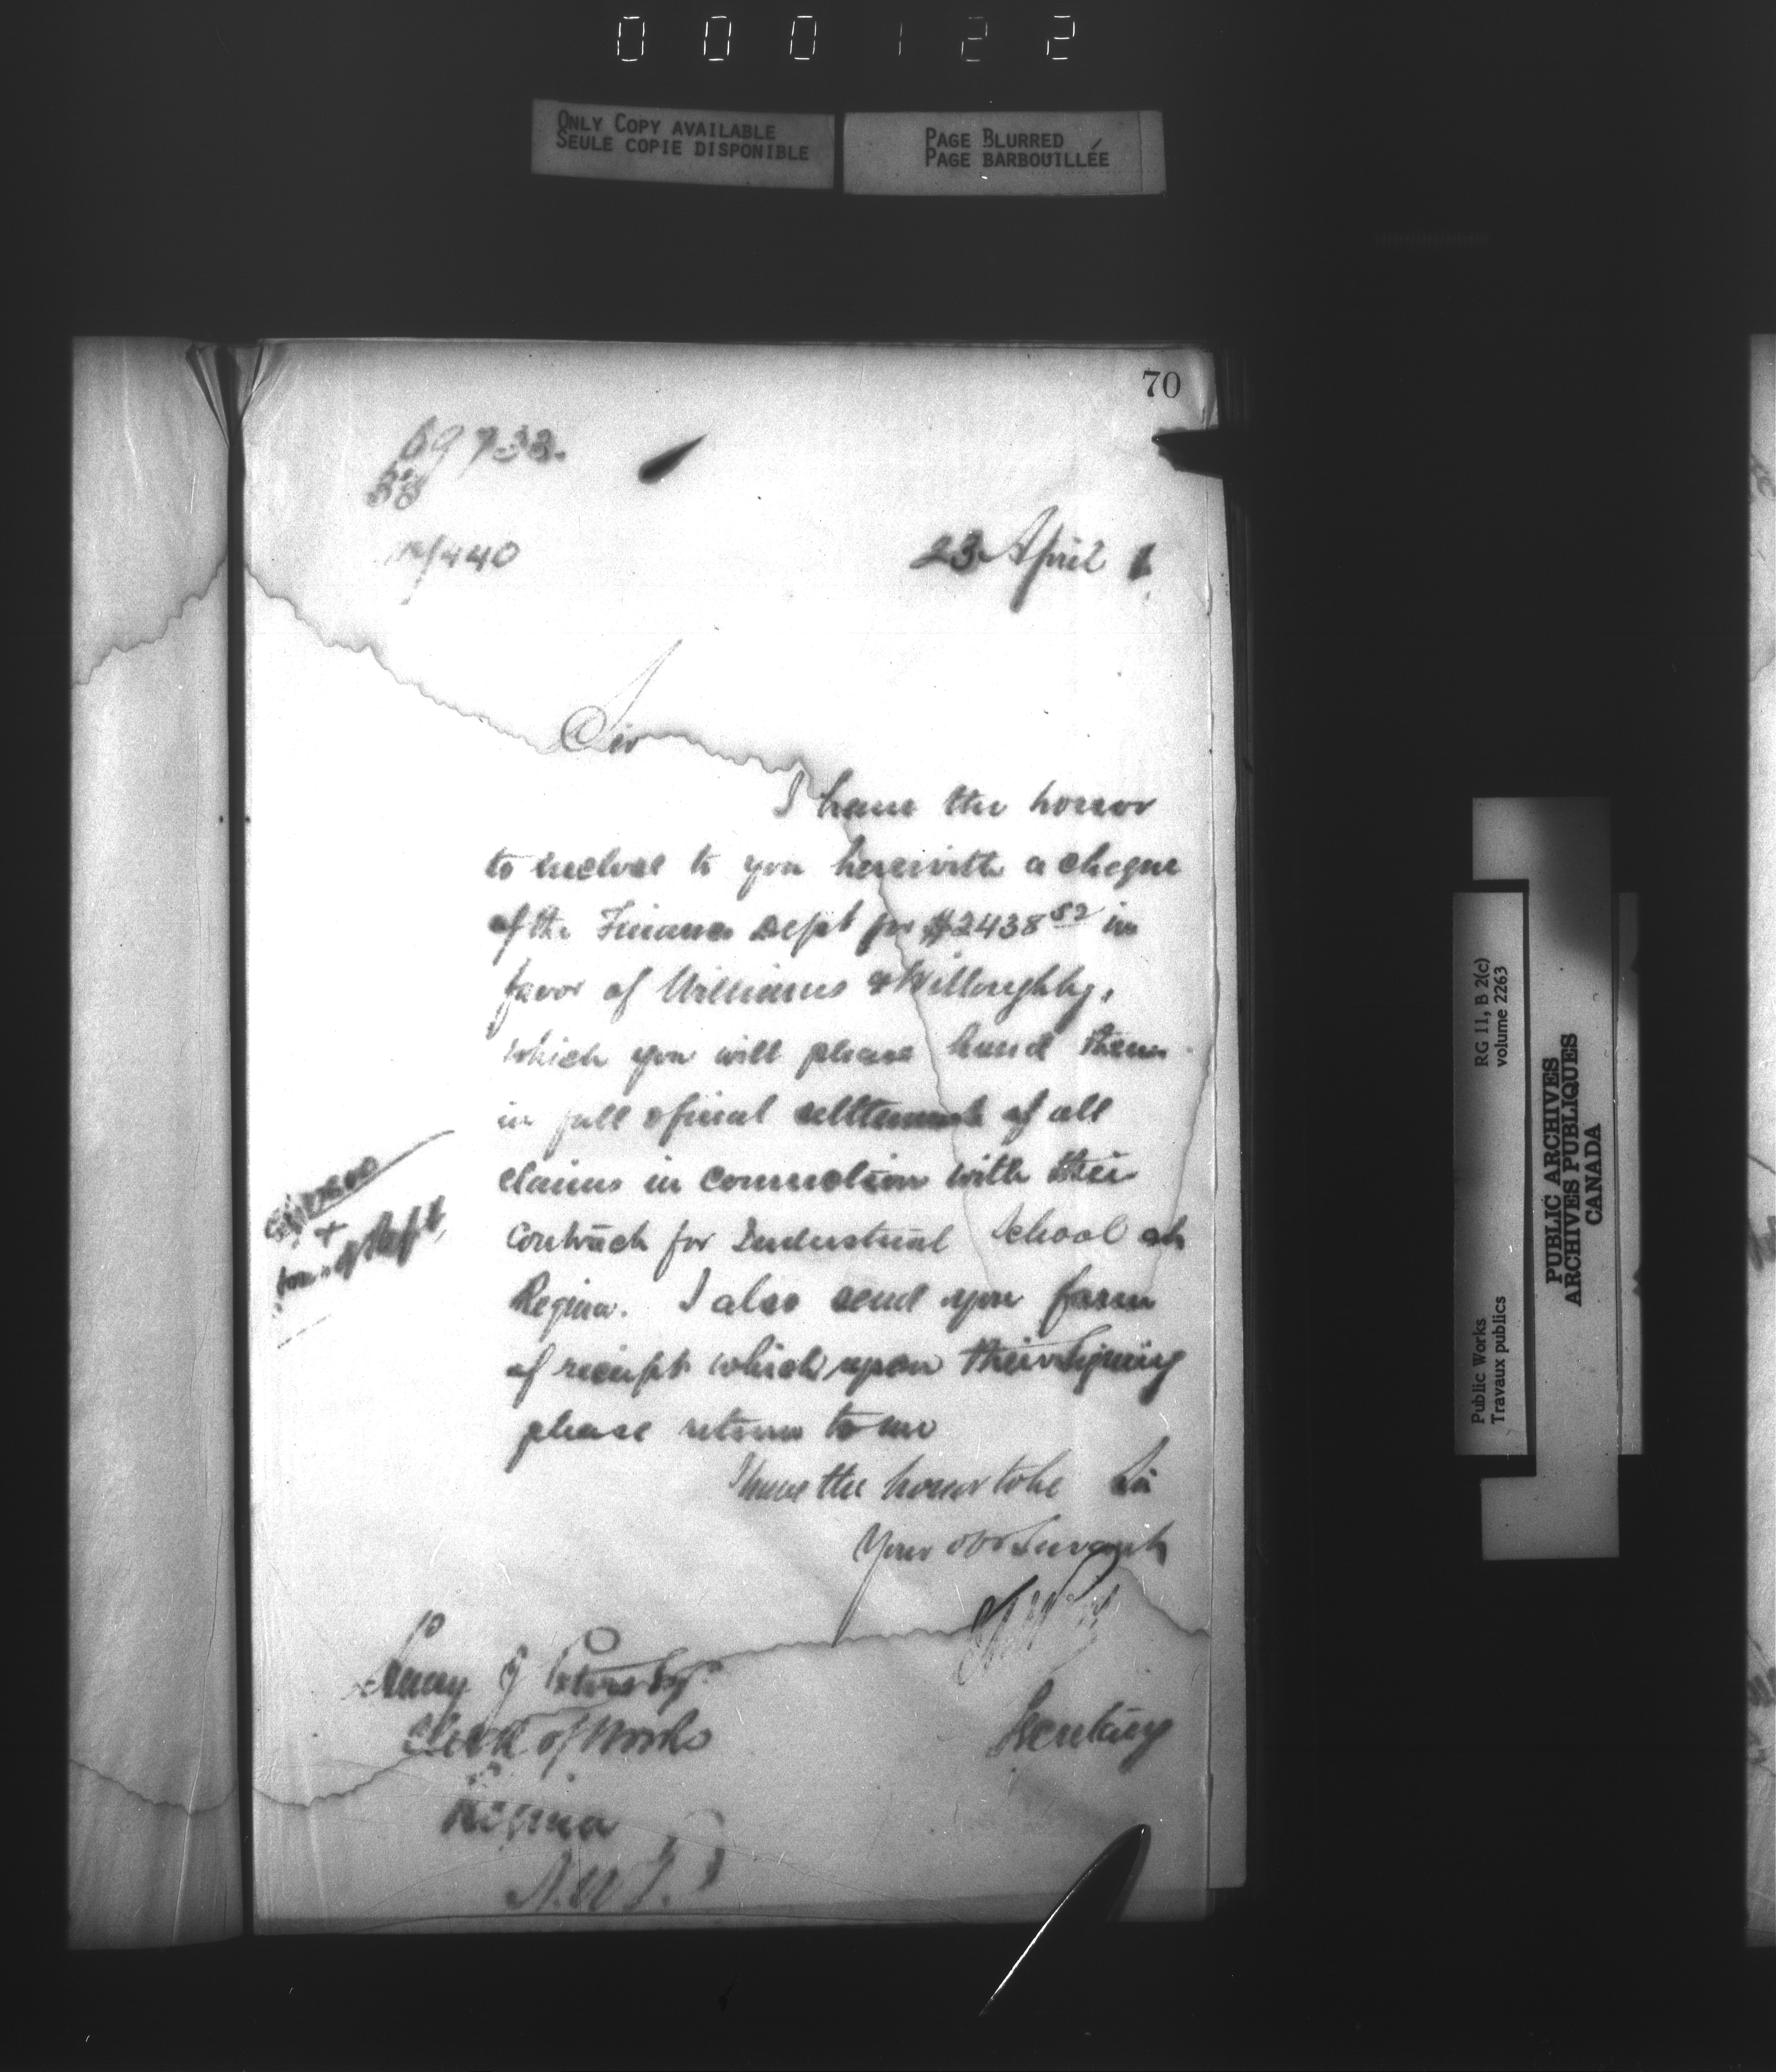 000122
ONLY COPY AVAILABLE
SEULE COPIE DISPONIBLE
PAGE BLURRED
PAGE BARBOUILLÉE
70
69733.
/440
23 April 1
Sir
I have the honor
to enclose to you herewith a cheque
of the Finance Dept for $2438 52 in
favor of Williams & Willoughby,
which you will please hand them
in full & final settlement of all
claims in connection with their
contract for Industrial School at
Regina. I also send you form
of receipt which upon their signing
please return to me
I have the honor to be Sir
Your obt Servant
Secretary
Henry J Peters Esq
Clerk of Works
Regina
N.W.T.
RG 11, B 2(c)
volume 2263
Public Works
Travaux publics
PUBLIC ARCHIVES
ARCHIVES PUBLIQUES
CANADA